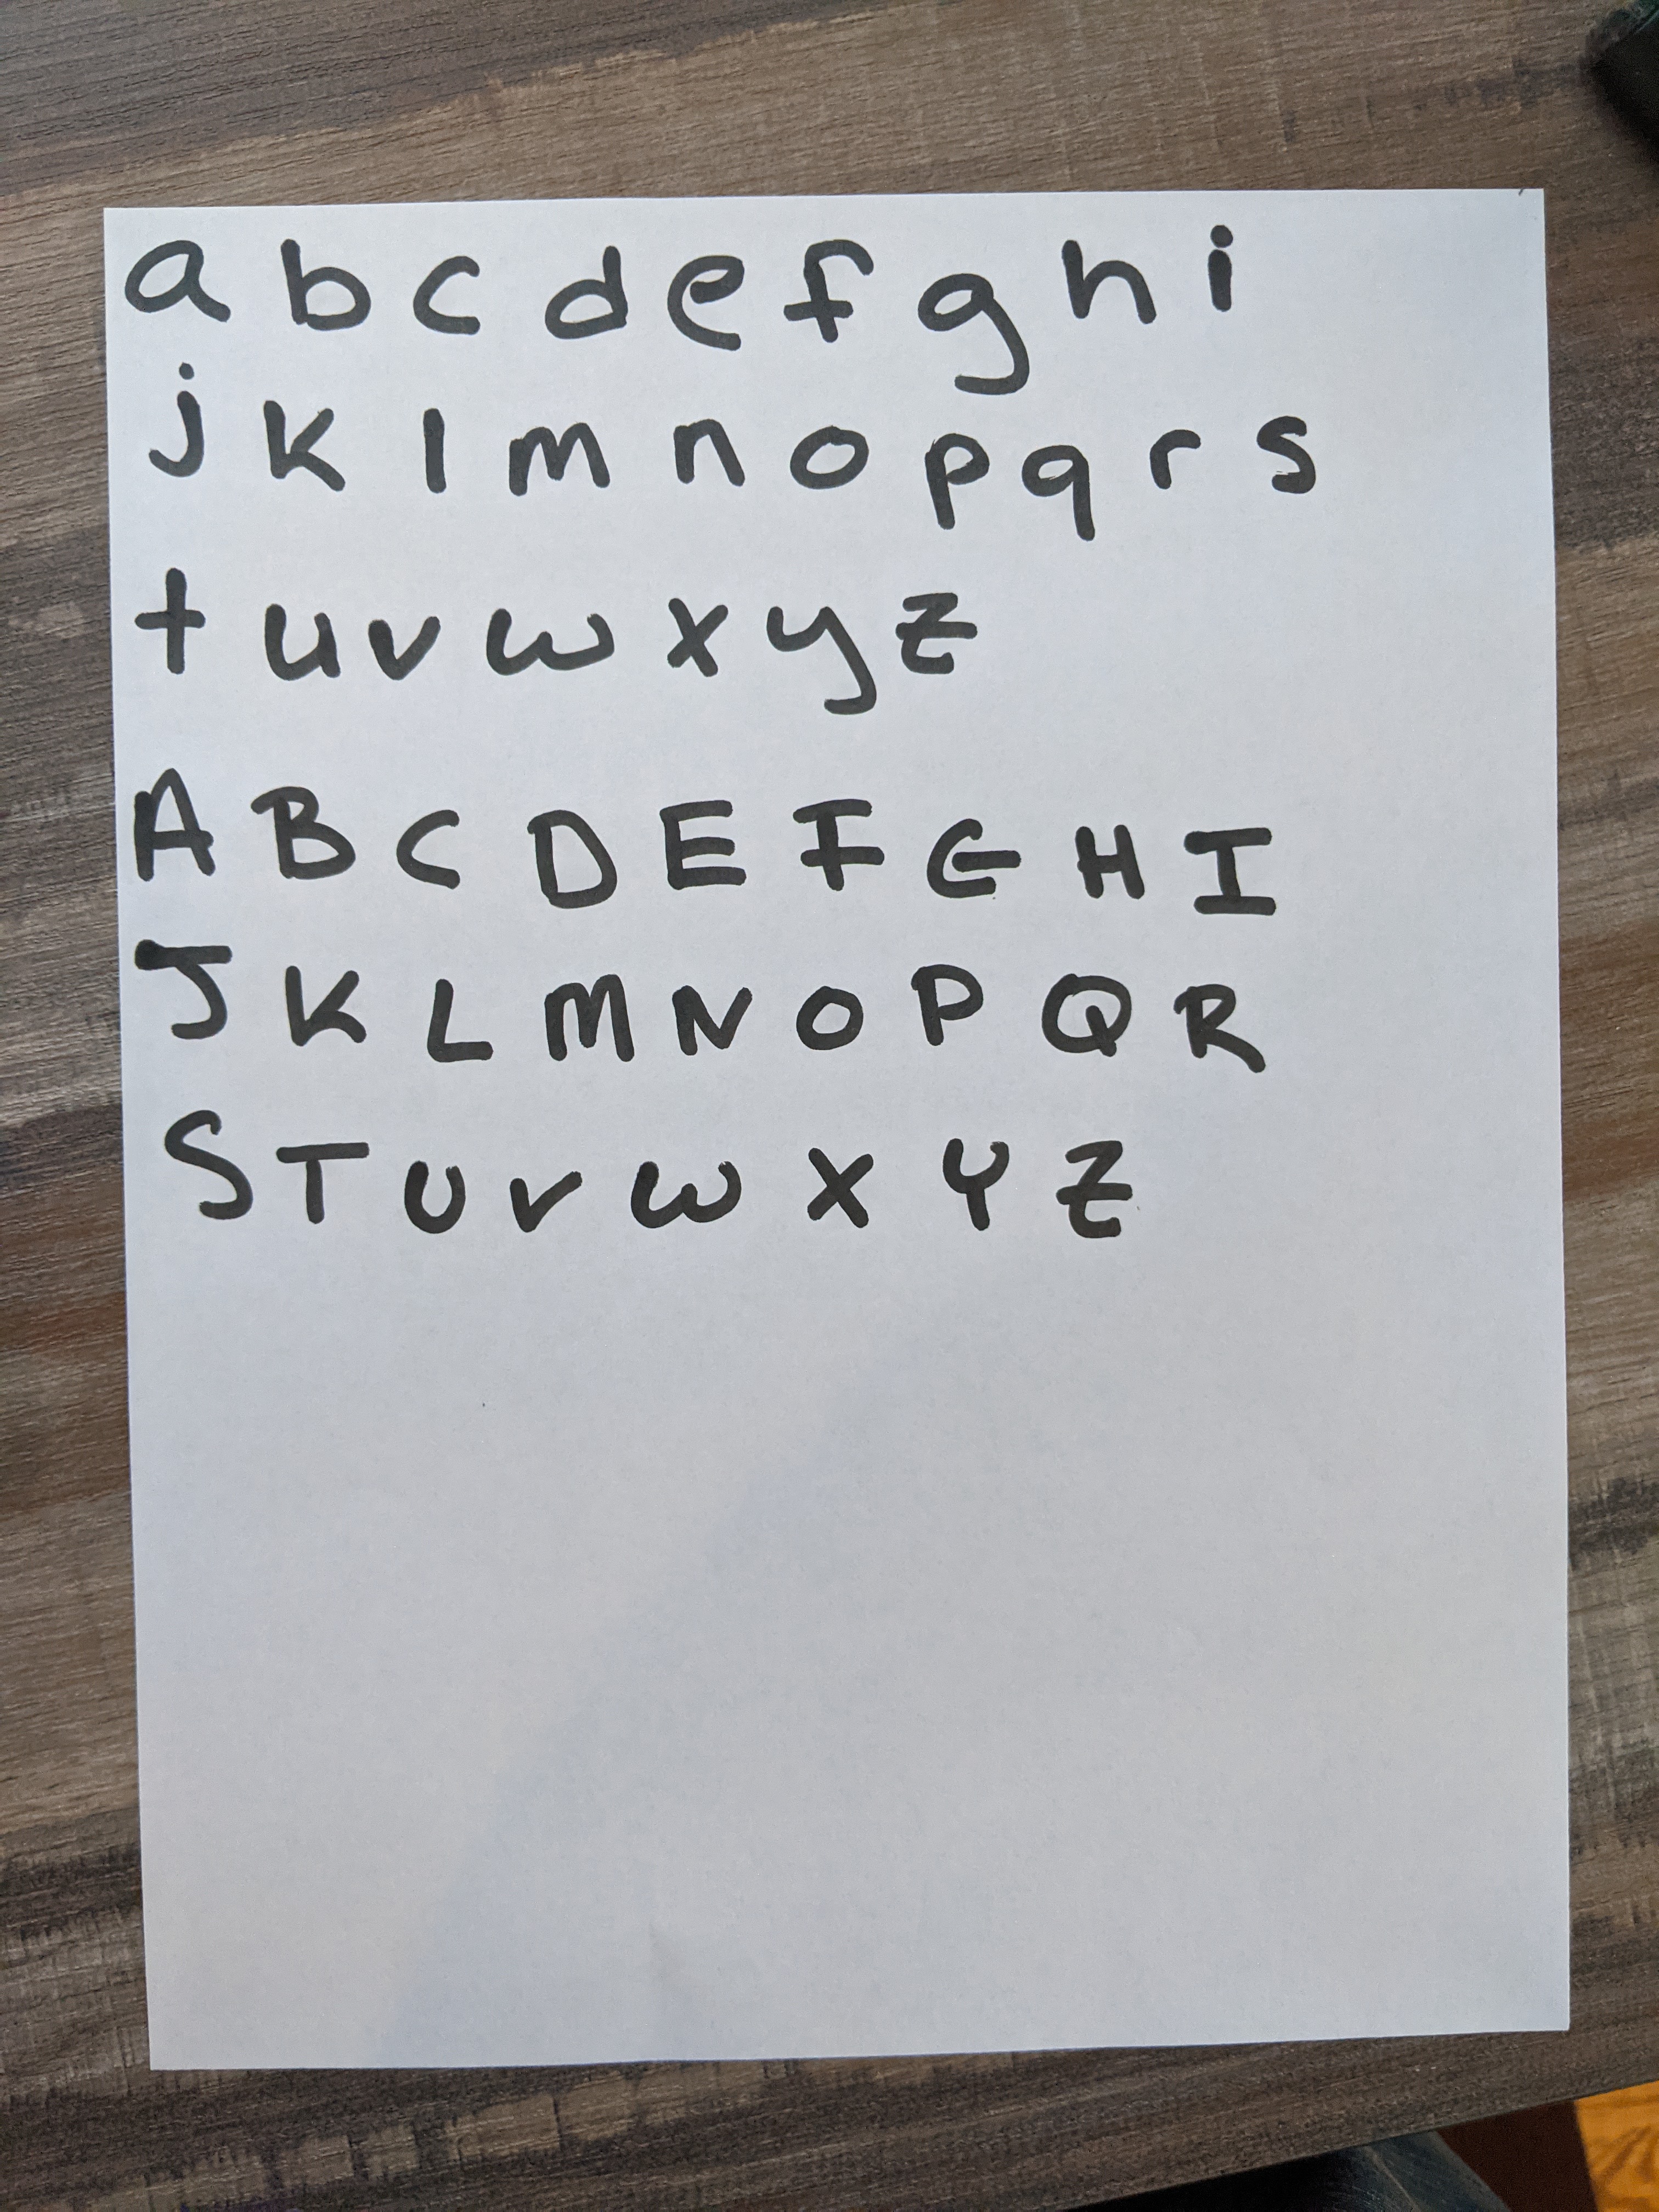 a b c d e f g h i
j k l m n o p q r s
t u v w x y z
A B C D E F G H I
J K L M N O P Q R
S T U V W X Y Z